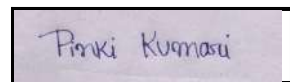 Pinki Kumari